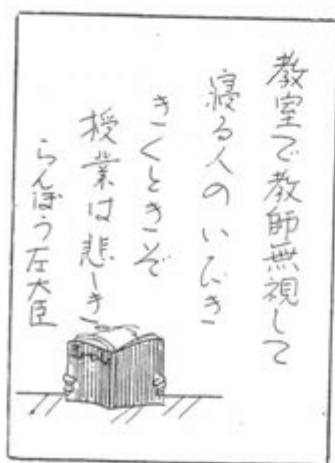 教室で教師無視して
寝る人のいびき
きくときぞ
授業は悲しき
らんぼう左大臣